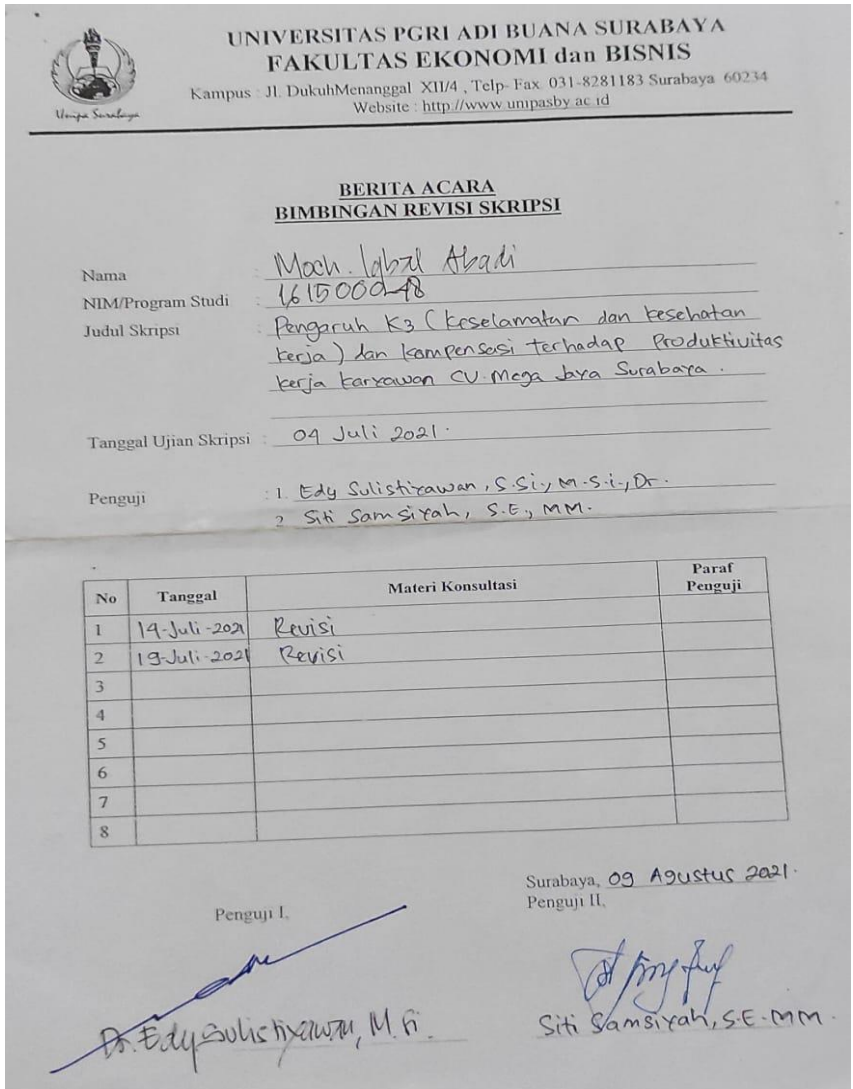 UNIVERSITAS PGRI ADI BUANA SURABAYA
FAKULTAS EKONOMI dan BISNIS
Kampus : Jl. DukuhMenanggal XII/4 , Telp- Fax. 031-8281183 Surabaya 60234
Website : http://www.unipasby.ac.id
Unipa Surabaya
BERITA ACARA
BIMBINGAN REVISI SKRIPSI
Nama : Moch. Iqbal Abadi
NIM/Program Studi :
Judul Skripsi : Pengaruh K3 (keselamatan dan kesehatan
kerja) dan kompensasi terhadap Produktivitas
kerja karyawan CV. Mega Jaya Surabaya.
Tanggal Ujian Skripsi : 04 Juli 2021.
Penguji : 1. Edy Sulistiyawan, S.Si., M.S.i., Dr.
2. Siti Samsiyah, S.E., MM.
No Tanggal Materi Konsultasi Paraf Penguji
1 14-Juli-2021 Revisi
2 19-Juli-2021 Revisi
3
4
5
6
7
8
Surabaya, 09 Agustus 2021.
Penguji I, Penguji II,
Dr. Edy Sulistiyawan, M.Si. Siti Samsiyah, S.E.MM.